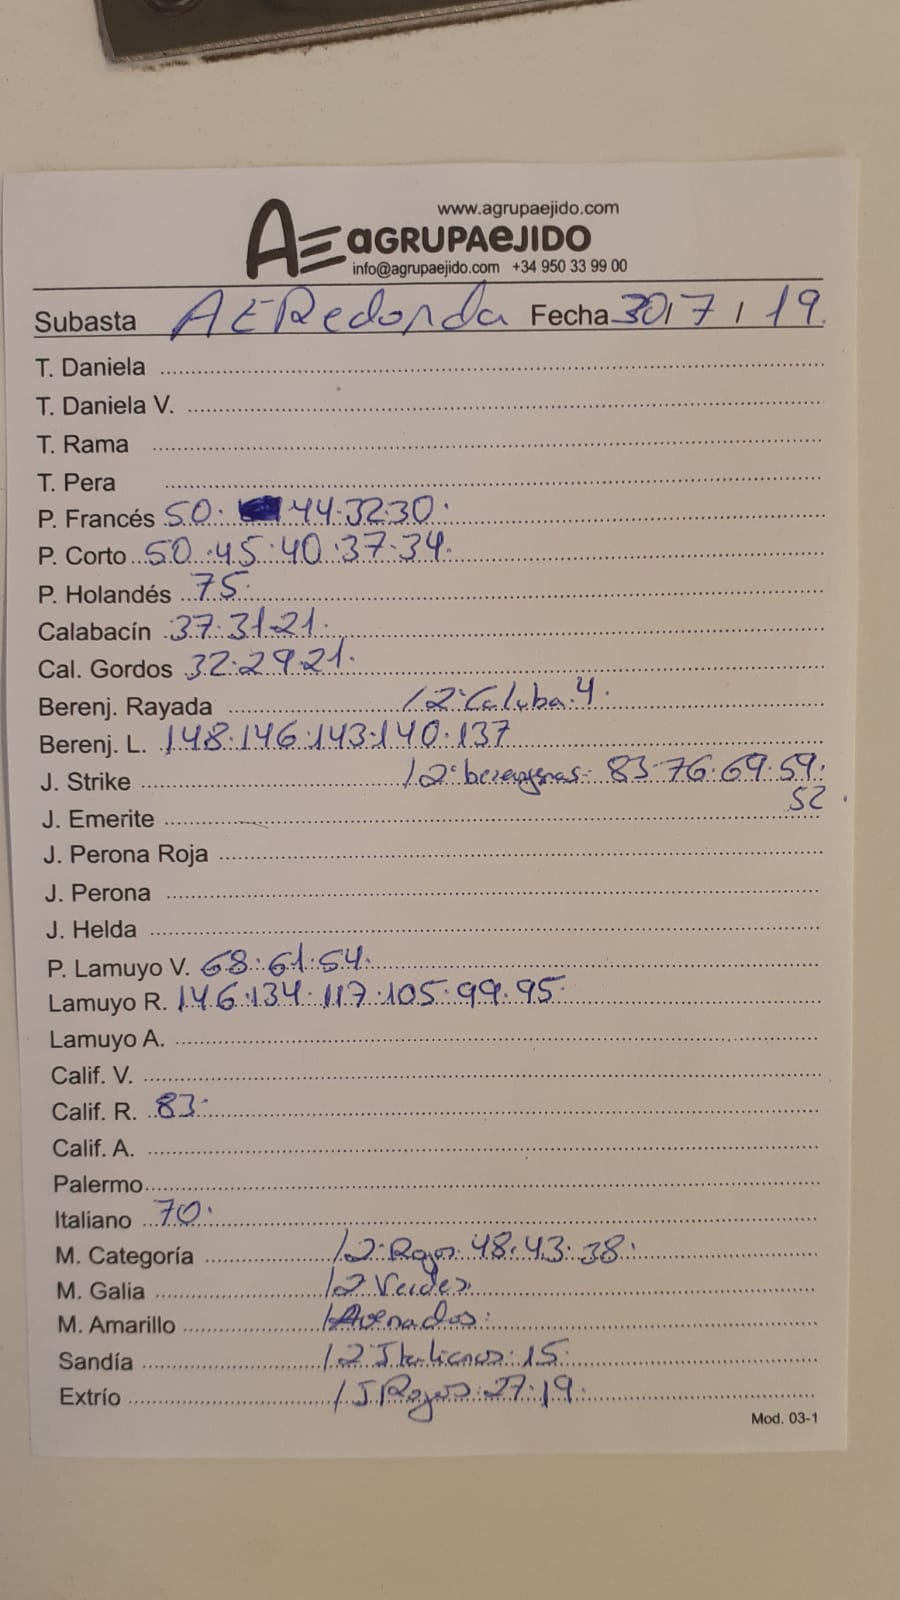 www.agrupaejido.com
AE aGRUPAeJIDO
info@agrupaejido.com +34 950 33 99 00
Subasta AE Redonda Fecha 30/7/19.
T. Daniela
T. Daniela V.
T. Rama
T. Pera
P. Francés 50. 44.32.30.
P. Corto 50.45.40.37.34.
P. Holandés 75.
Calabacín 37.31.21.
Cal. Gordos 32.29.21.
Berenj. Rayada / 2ª Calaba. 4.
Berenj. L. 148.146.143.140.137
J. Strike / 2ª berenjenas. 83.76.69.59.
52.
J. Emerite
J. Perona Roja
J. Perona
J. Helda
P. Lamuyo V. 68.61.54.
Lamuyo R. 146.134.117.105.99.95.
Lamuyo A.
Calif. V.
Calif. R. 83.
Calif. A.
Palermo
Italiano 70.
M. Categoría / 2. Rojos. 48.43.38.
M. Galia / 2 Verdes.
M. Amarillo / Asenados.
Sandía / 2 Italianos. 15.
Extrío / J. Rojos. 27.19.
Mod. 03-1